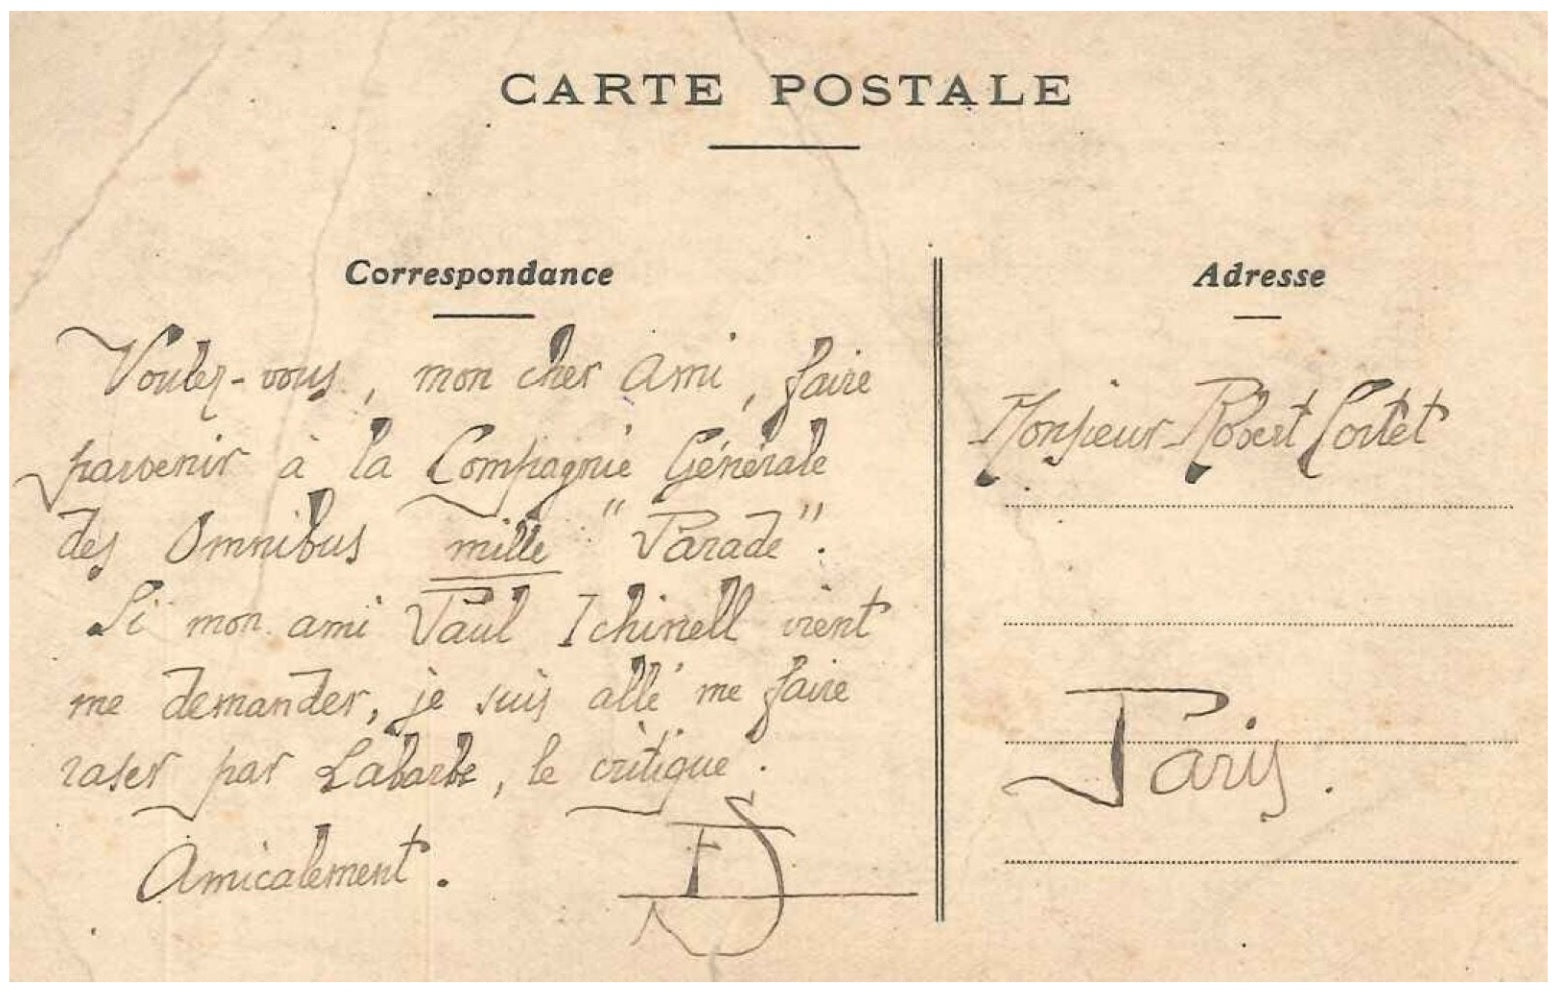 CARTE POSTALE
Correspondance
Voulez-vous, mon cher ami, faire
parvenir à la Compagnie Générale
des Omnibus mille "Parade".
Si mon ami Paul Ichinell vient
me demander, je suis allé me faire
raser par Labarbe, le critique.
Amicalement.
ES
Adresse
Monsieur Robert Cortet
Paris.